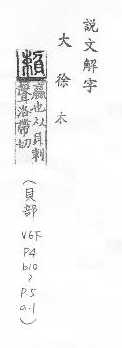 説文解字
大徐本
賴
贏也从貝剌
聲洛帶切
(貝部
V6F
P4
b10
?
P.5
a.1)